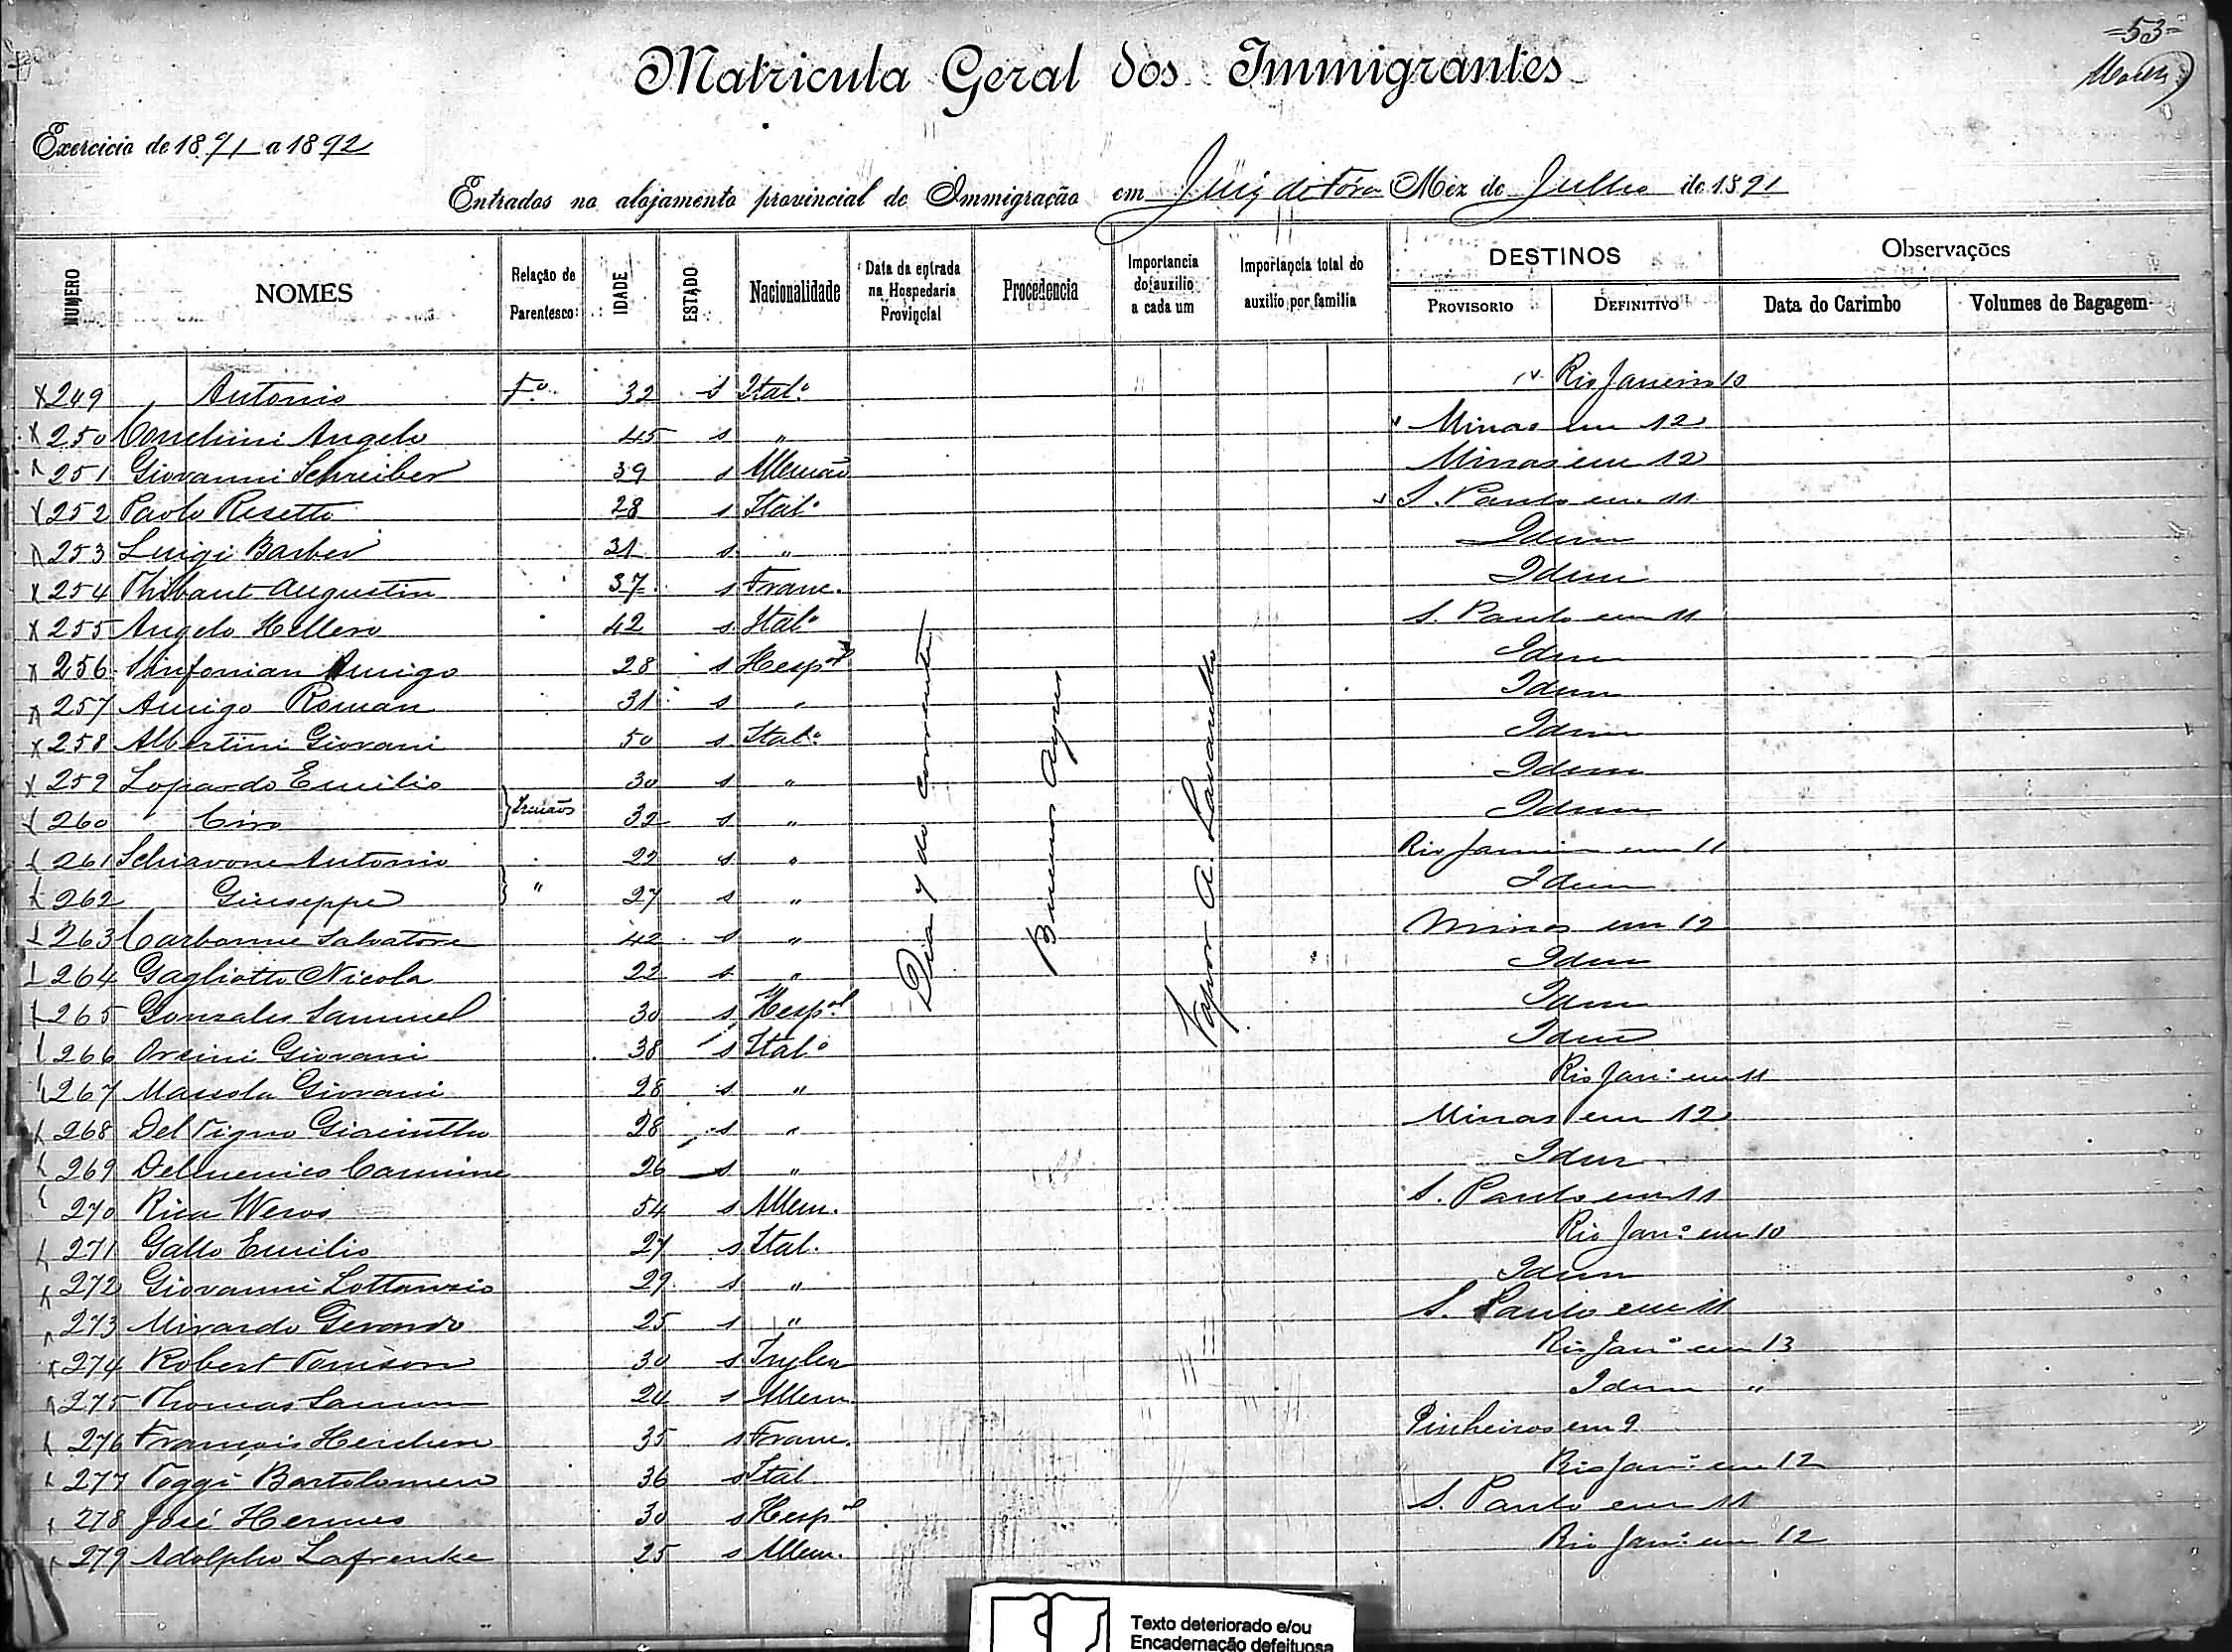 =53=
Matricula Geral dos Immigrantes
Exercicio de 1891 a 1892
Entrados no alojamento provincial de Immigração em Juiz de Fóra Mez de Julho de 1891
NUMERO NOMES Relação de Parentesco IDADE ESTADO Nacionalidade Data da entrada na Hospedaria Provincial Procedencia Importancia do auxilio a cada um Importancia total do auxilio por familia DESTINOS Observações
PROVISORIO DEFINITIVO Data do Carimbo Volumes de Bagagem
249 Antonio Fº 32 s Ital.º Rio Janeiro 10
250 Angelo 45 s " Minas em 12
251 Giovanni Schreiber 39 s Allemão Minas em 12
252 Paolo Resetto 28 s Ital.º S. Paulo em 11
253 Luigi Barber 31 s " Idem
254 Thibaut Augustin 37 s Franc. Idem
255 Angelo Hellero 42 s Ital.º S. Paulo em 11
256 Amigo 28 s Hesp.ol Idem
257 Amigo Roman 31 s " Idem
258 Albertini Giovani 50 s Ital.º Idem
259 Lopardo Emilio 30 s " Idem
260 Ciro Irmãos 32 s " Idem
261 Schiavone Antonio 22 s " Rio Janeiro em 11
262 Giuseppe " 27 s " Idem
263 Carbonne Salvatore 42 s " Minas em 12
264 Gagliotto Nicola 22 s " Idem
265 Gonzales Samuel 30 s Hesp.ol Idem
266 Orsini Giovani 38 s Ital.º Idem
267 Giovani 28 s " Rio Jan.º em 11
268 Del Vigno Giacintho 28 s " Minas em 12
269 Delmenico Carmine 26 s " Idem
270 Rica Weros 54 s Allem. S. Paulo em 11
271 Gallo Emilio 27 s Ital. Rio Jan.º em 10
272 Giovanni Lottanzio 29 s " Idem
273 Mirardo Gerardo 25 s " S. Paulo em 11
274 Robert Tomison 30 s Inglez Rio Jan.º em 13
275 Thomas 24 s Allem Idem "
276 François 35 s Franc. Pinheiros em 9
277 Poggi Bartolomeu 36 s Ital Rio Jan.º em 12
278 José Hermes 30 s Hesp.ol S. Paulo em 11
279 Adolpho Lafrenke 25 s Allem. Rio Jan.º em 12
Dia 7 do corrente
Buenos Ayres
Vapor A. Lavarello
Texto deteriorado e/ou
Encadernação defeituosa